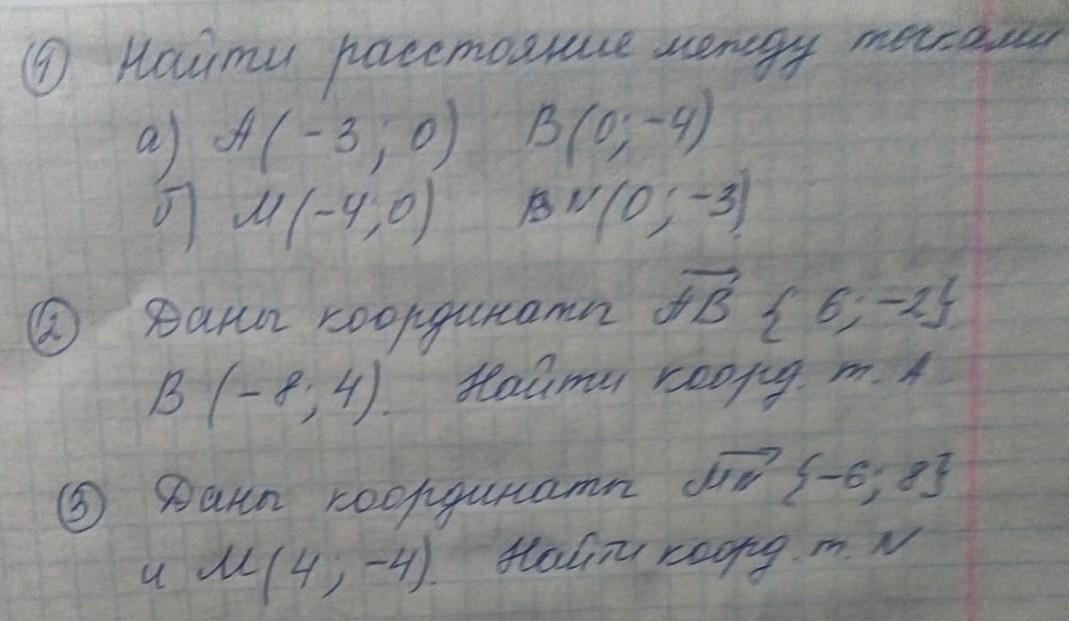 ① Найти расстояние между точками
а) А(-3; 0) В(0; -4)
б) М(-4; 0) N(0; -3)
② Даны координаты АВ {6; -2}
В (-8; 4). Найти коорд. т. А
③ Даны координаты MN {-6; 8}
и М(4; -4). Найти коорд. т. N